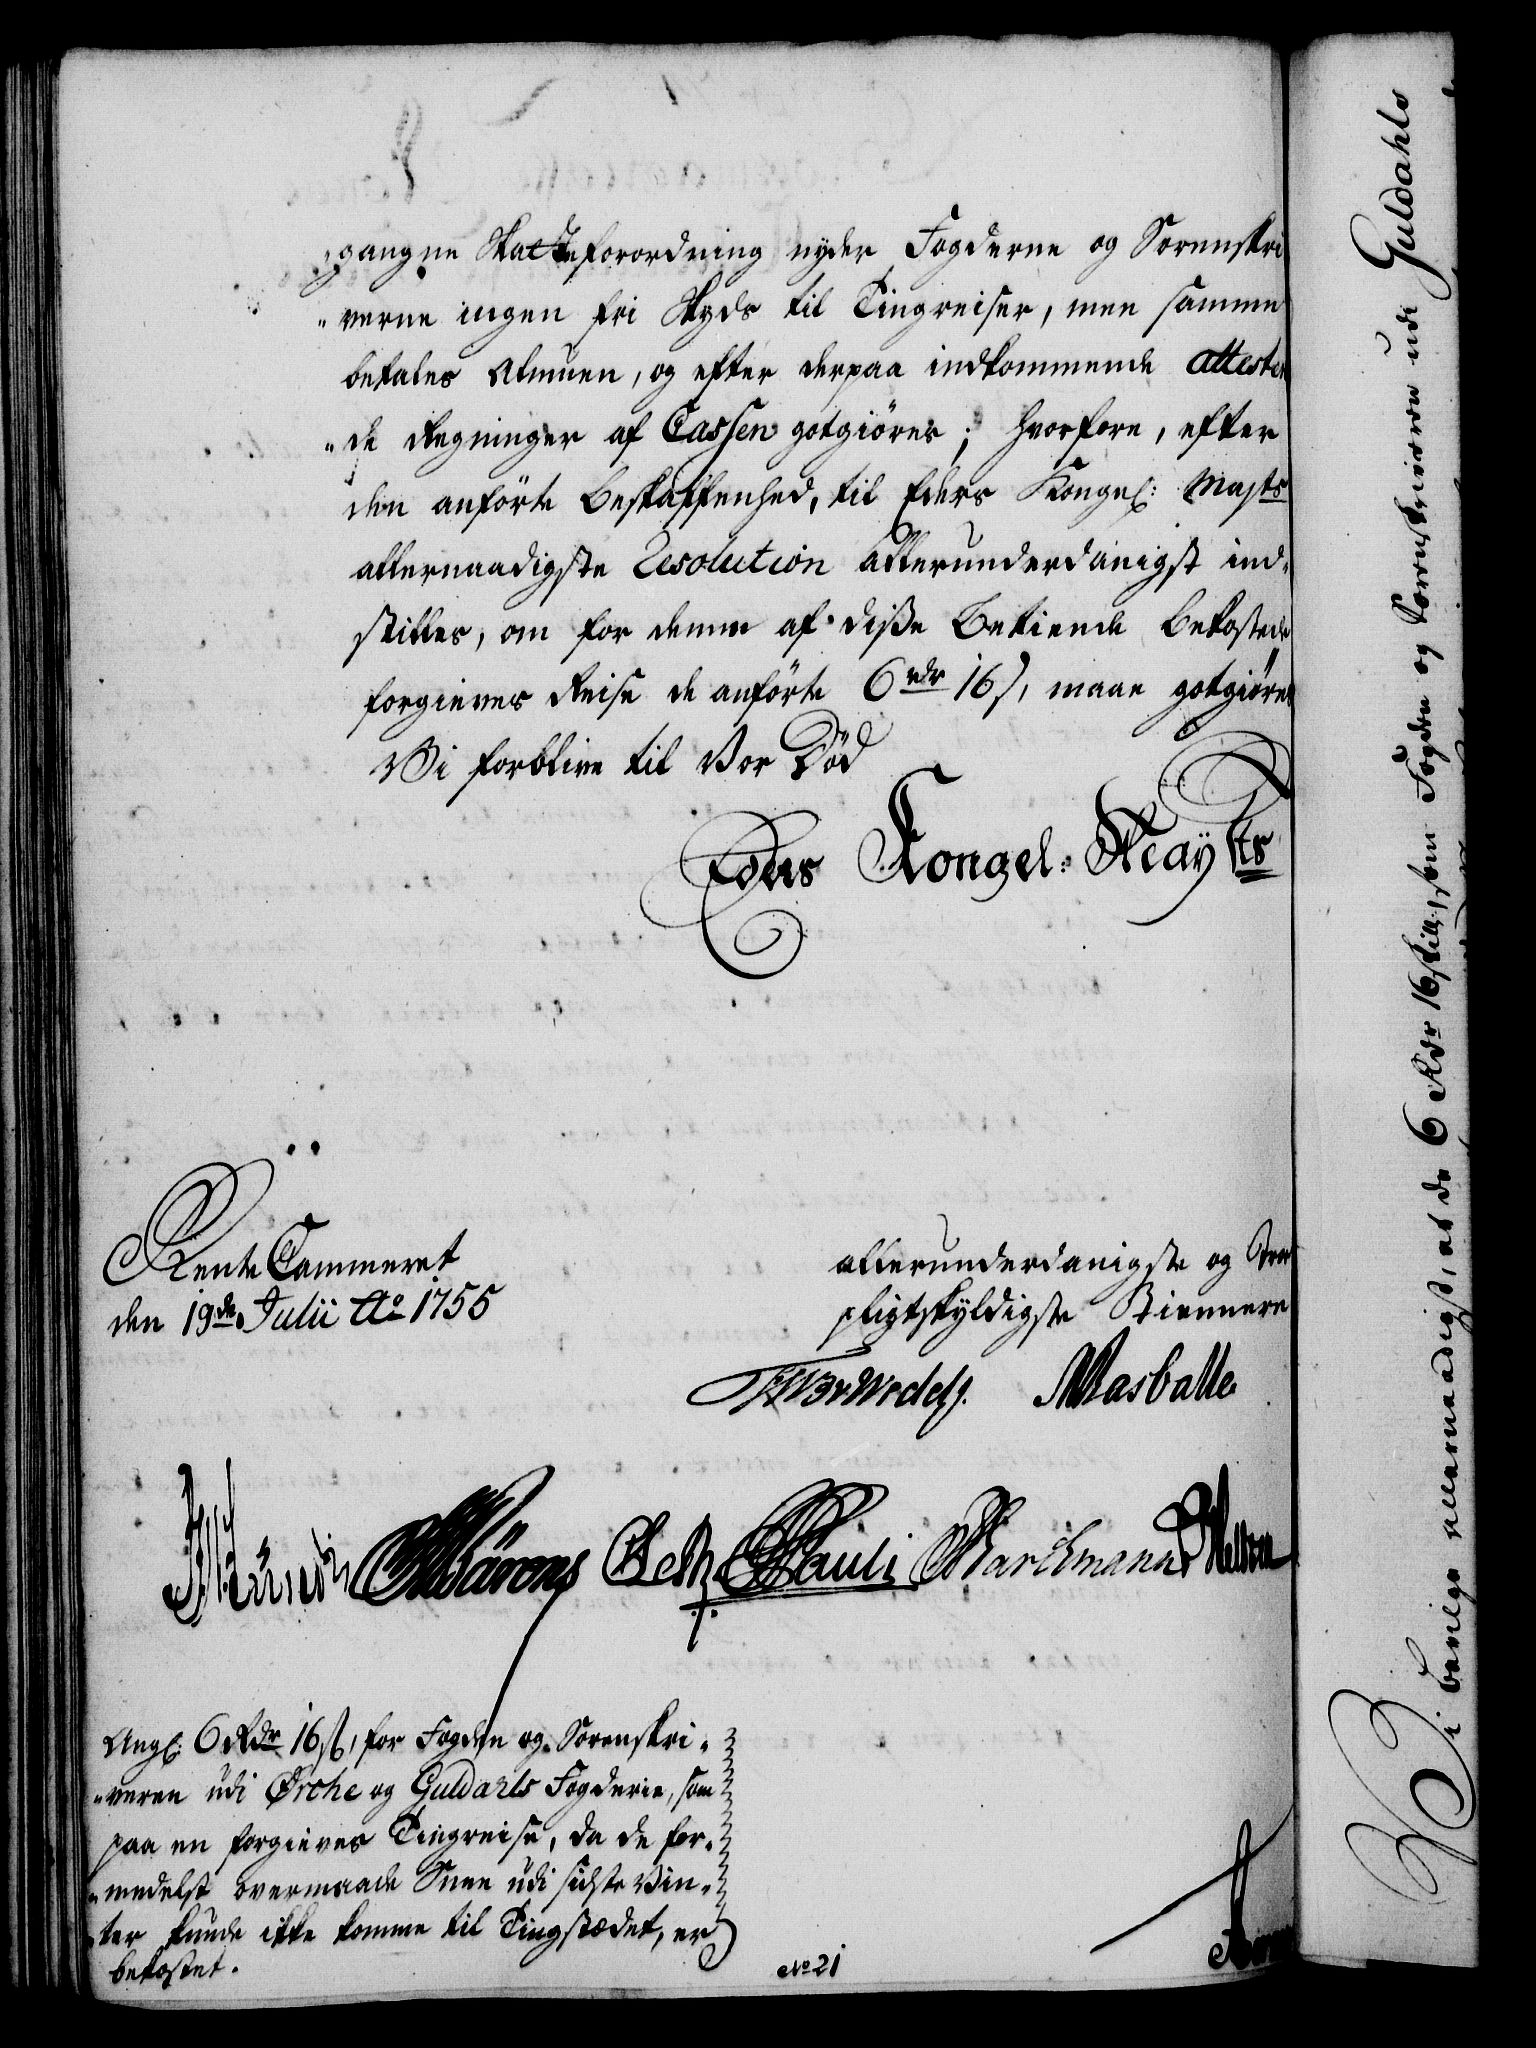 gangne Skatteforordning nyder Fogderne og Sorenskri
"verne ingen fri Skyds til Tingreiser, men samme
betales Almuen, og efter derpaa indkommende atteste
"de Regninger af Cassen gotgiöres; hvorfore, efter
den anförte Beskaffenhed, til Eders Kongel: Majts
allernaadigste Resolution allerunderdanigst ind,
stilles, om for denne af disse Betiente bekostede
forgieves Reise de anförte 6 rdr 16 s, maae gotgiöres
Vi forblive til Vor Död
Eders Kongel: Mayts
Rente Cammeret
den 19de Julii Ao 1755
allerunderdanigste og Troe
pligtskyldigste Tiennere
Wedel
Masballe
Pauli Barchmann
Ang: 6 Rdr 16 s, for Fogden og Sorenskri,
"veren udi Örche og Guldahls Fogderie, som
paa en forgieves Tingreise, da de for,
"medelst overmaade Snee udi sidste Vin,
ter kunde ikke komme til Tingstædet, er
bekostet.
No 21
Vi bevilge allernaadigst, at de 6 Rdr 16 skill, som Fogden og Sorenskriveren udi Guldahls